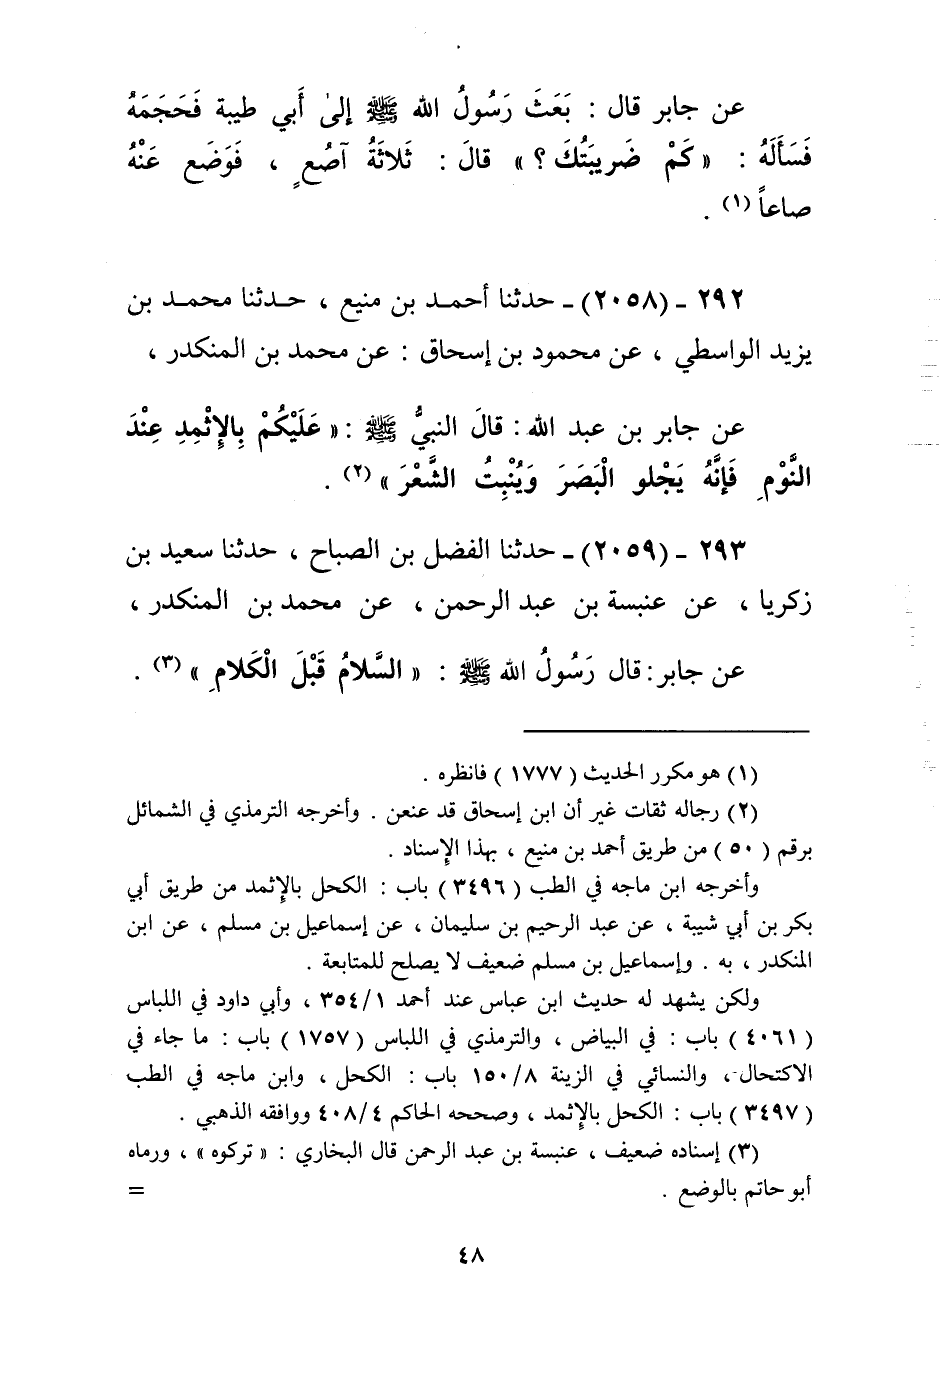 عن جابر قال : بَعَثَ رَسُولُ الله ﷺ إلىٰ أَبي طيبة فَحَجَمَهُ
فَسَأَلَهُ : « كَمْ ضَرِيبَتُكَ ؟ » قالَ : ثَلاثَةُ آصُعٍ ، فَوَضَع عَنْهُ
صاعاً (١) .
٢٩٢ ـ (٢٠٥٨) ـ حدثنا أحمد بن منيع ، حدثنا محمد بن
يزيد الواسطي ، عن محمود بن إسحاق : عن محمد بن المنكدر ،
عن جابر بن عبد الله : قالَ النبيُّ ﷺ : « عَلَيْكُمْ بِالإِثْمِدِ عِنْدَ
النَّوْمِ فَإِنَّهُ يَجْلو الْبَصَرَ وَيُنْبِتُ الشَّعْرَ » (٢) .
٢٩٣ ـ (٢٠٥٩) ـ حدثنا الفضل بن الصباح ، حدثنا سعيد بن
زكريا ، عن عنبسة بن عبد الرحمن ، عن محمد بن المنكدر ،
عن جابر : قال رَسُولُ الله ﷺ : « السَّلامُ قَبْلَ الْكَلامِ » (٣) .
(١) هو مكرر الحديث ( ١٧٧٧ ) فانظره .
(٢) رجاله ثقات غير أن ابن إسحاق قد عنعن . وأخرجه الترمذي في الشمائل
برقم ( ٥٠ ) من طريق أحمد بن منيع ، بهذا الإسناد .
وأخرجه ابن ماجه في الطب ( ٣٤٩٦ ) باب : الكحل بالإثمد من طريق أبي
بكر بن أبي شيبة ، عن عبد الرحيم بن سليمان ، عن إسماعيل بن مسلم ، عن ابن
المنكدر ، به . وإسماعيل بن مسلم ضعيف لا يصلح للمتابعة .
ولكن يشهد له حديث ابن عباس عند أحمد ٣٥٤/١ ، وأبي داود في اللباس
( ٤٠٦١ ) باب : في البياض ، والترمذي في اللباس ( ١٧٥٧ ) باب : ما جاء في
الاكتحال ، والنسائي في الزينة ١٥٠/٨ باب : الكحل ، وابن ماجه في الطب
( ٣٤٩٧ ) باب : الكحل بالإثمد ، وصححه الحاكم ٤٠٨/٤ ووافقه الذهبي .
(٣) إسناده ضعيف ، عنبسة بن عبد الرحمن قال البخاري : « تركوه » ، ورماه
أبو حاتم بالوضع . =
٤٨